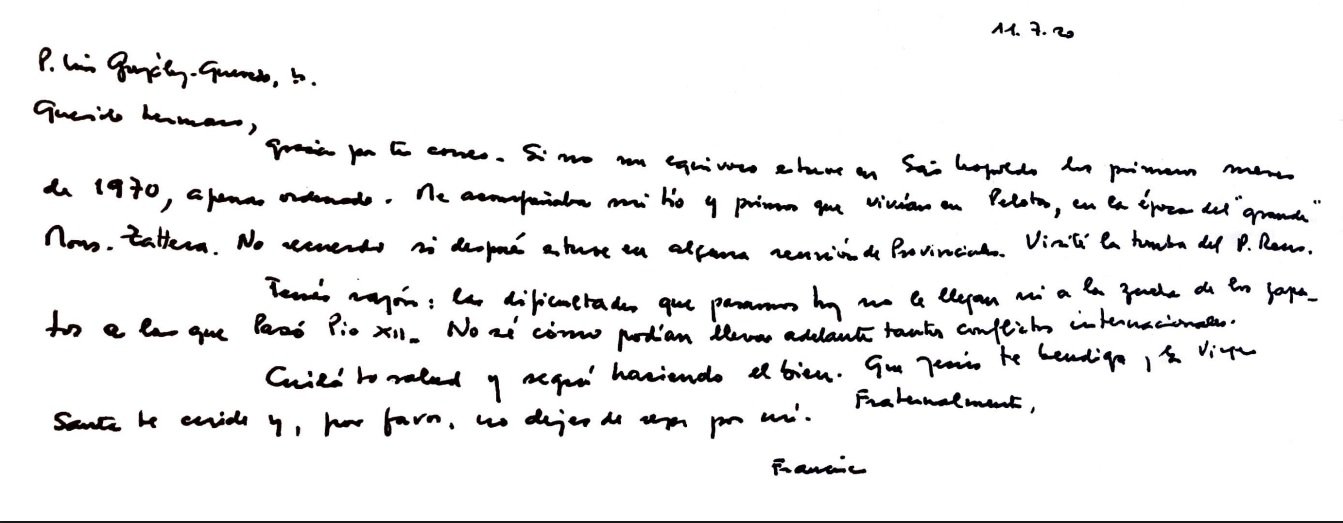 11.7.20
P. Luis González-Quevedo, sj.
Querido hermano,
gracias por tu correo. Si no me equivoco estuve en São Leopoldo los primeros meses
de 1970, apenas ordenado. Me acompañaba mi tío y primos que vivían en Pelotas, en la época del "grande"
Mons. Zattera. No recuerdo si después estuve en alguna reunión de Provinciales. Visité la tumba del P. Reus.
Tenés razón: las dificultades que pasamos hoy no le llegan ni a la zuela de los zapa-
tos a las que Pasó Pio XII. No sé cómo podían llevar adelante tantos conflictos internacionales.
Cuidá tu salud y seguí haciendo el bien. Que Jesús te bendiga, la Virgen
Santa te cuide y, por favor, no dejes de rezar por mí.
Fraternalmente,
Francisco